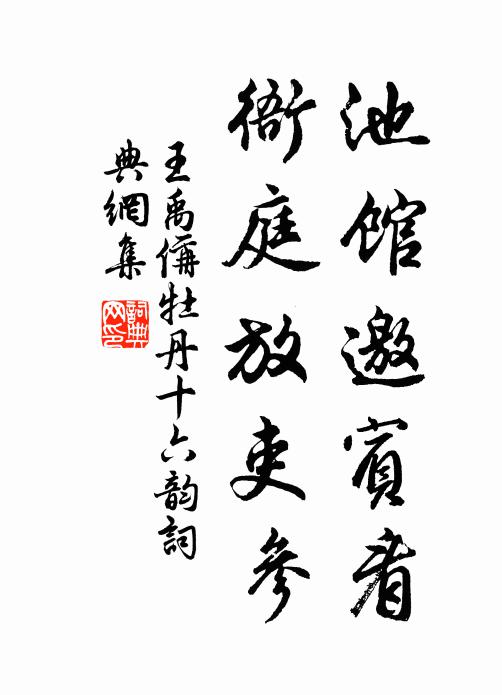 池館邀賓看
衙庭放吏參
王禹偁牡丹十六韵詞
典網集
詞典
网印